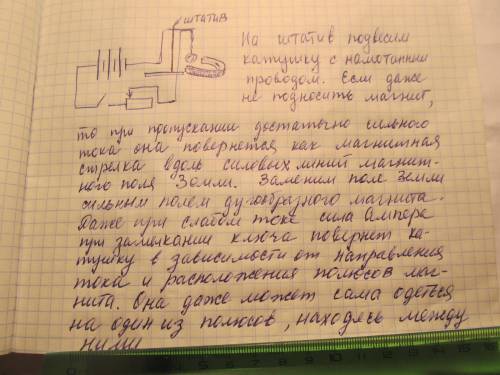 ШТАТИВ
На штатив подвесим
катушку с намотанным
проводом. Если даже
не подносить магнит,
то при пропускании достаточно сильного
тока она повернется как магнитная
стрелка вдоль силовых линий магнит-
ного поля Земли. Заменим поле Земли
сильным полем дугообразного магнита.
Даже при слабом токе сила Ампера
при замыкании ключа повернет ка-
тушку в зависимости от направления
тока и расположения полюсов маг-
нита. Она даже может сама одеться
на один из полюсов, находясь между
ними
0 1 2 3 4 5 6 7 8 9 10 11 12 13 14 15 16